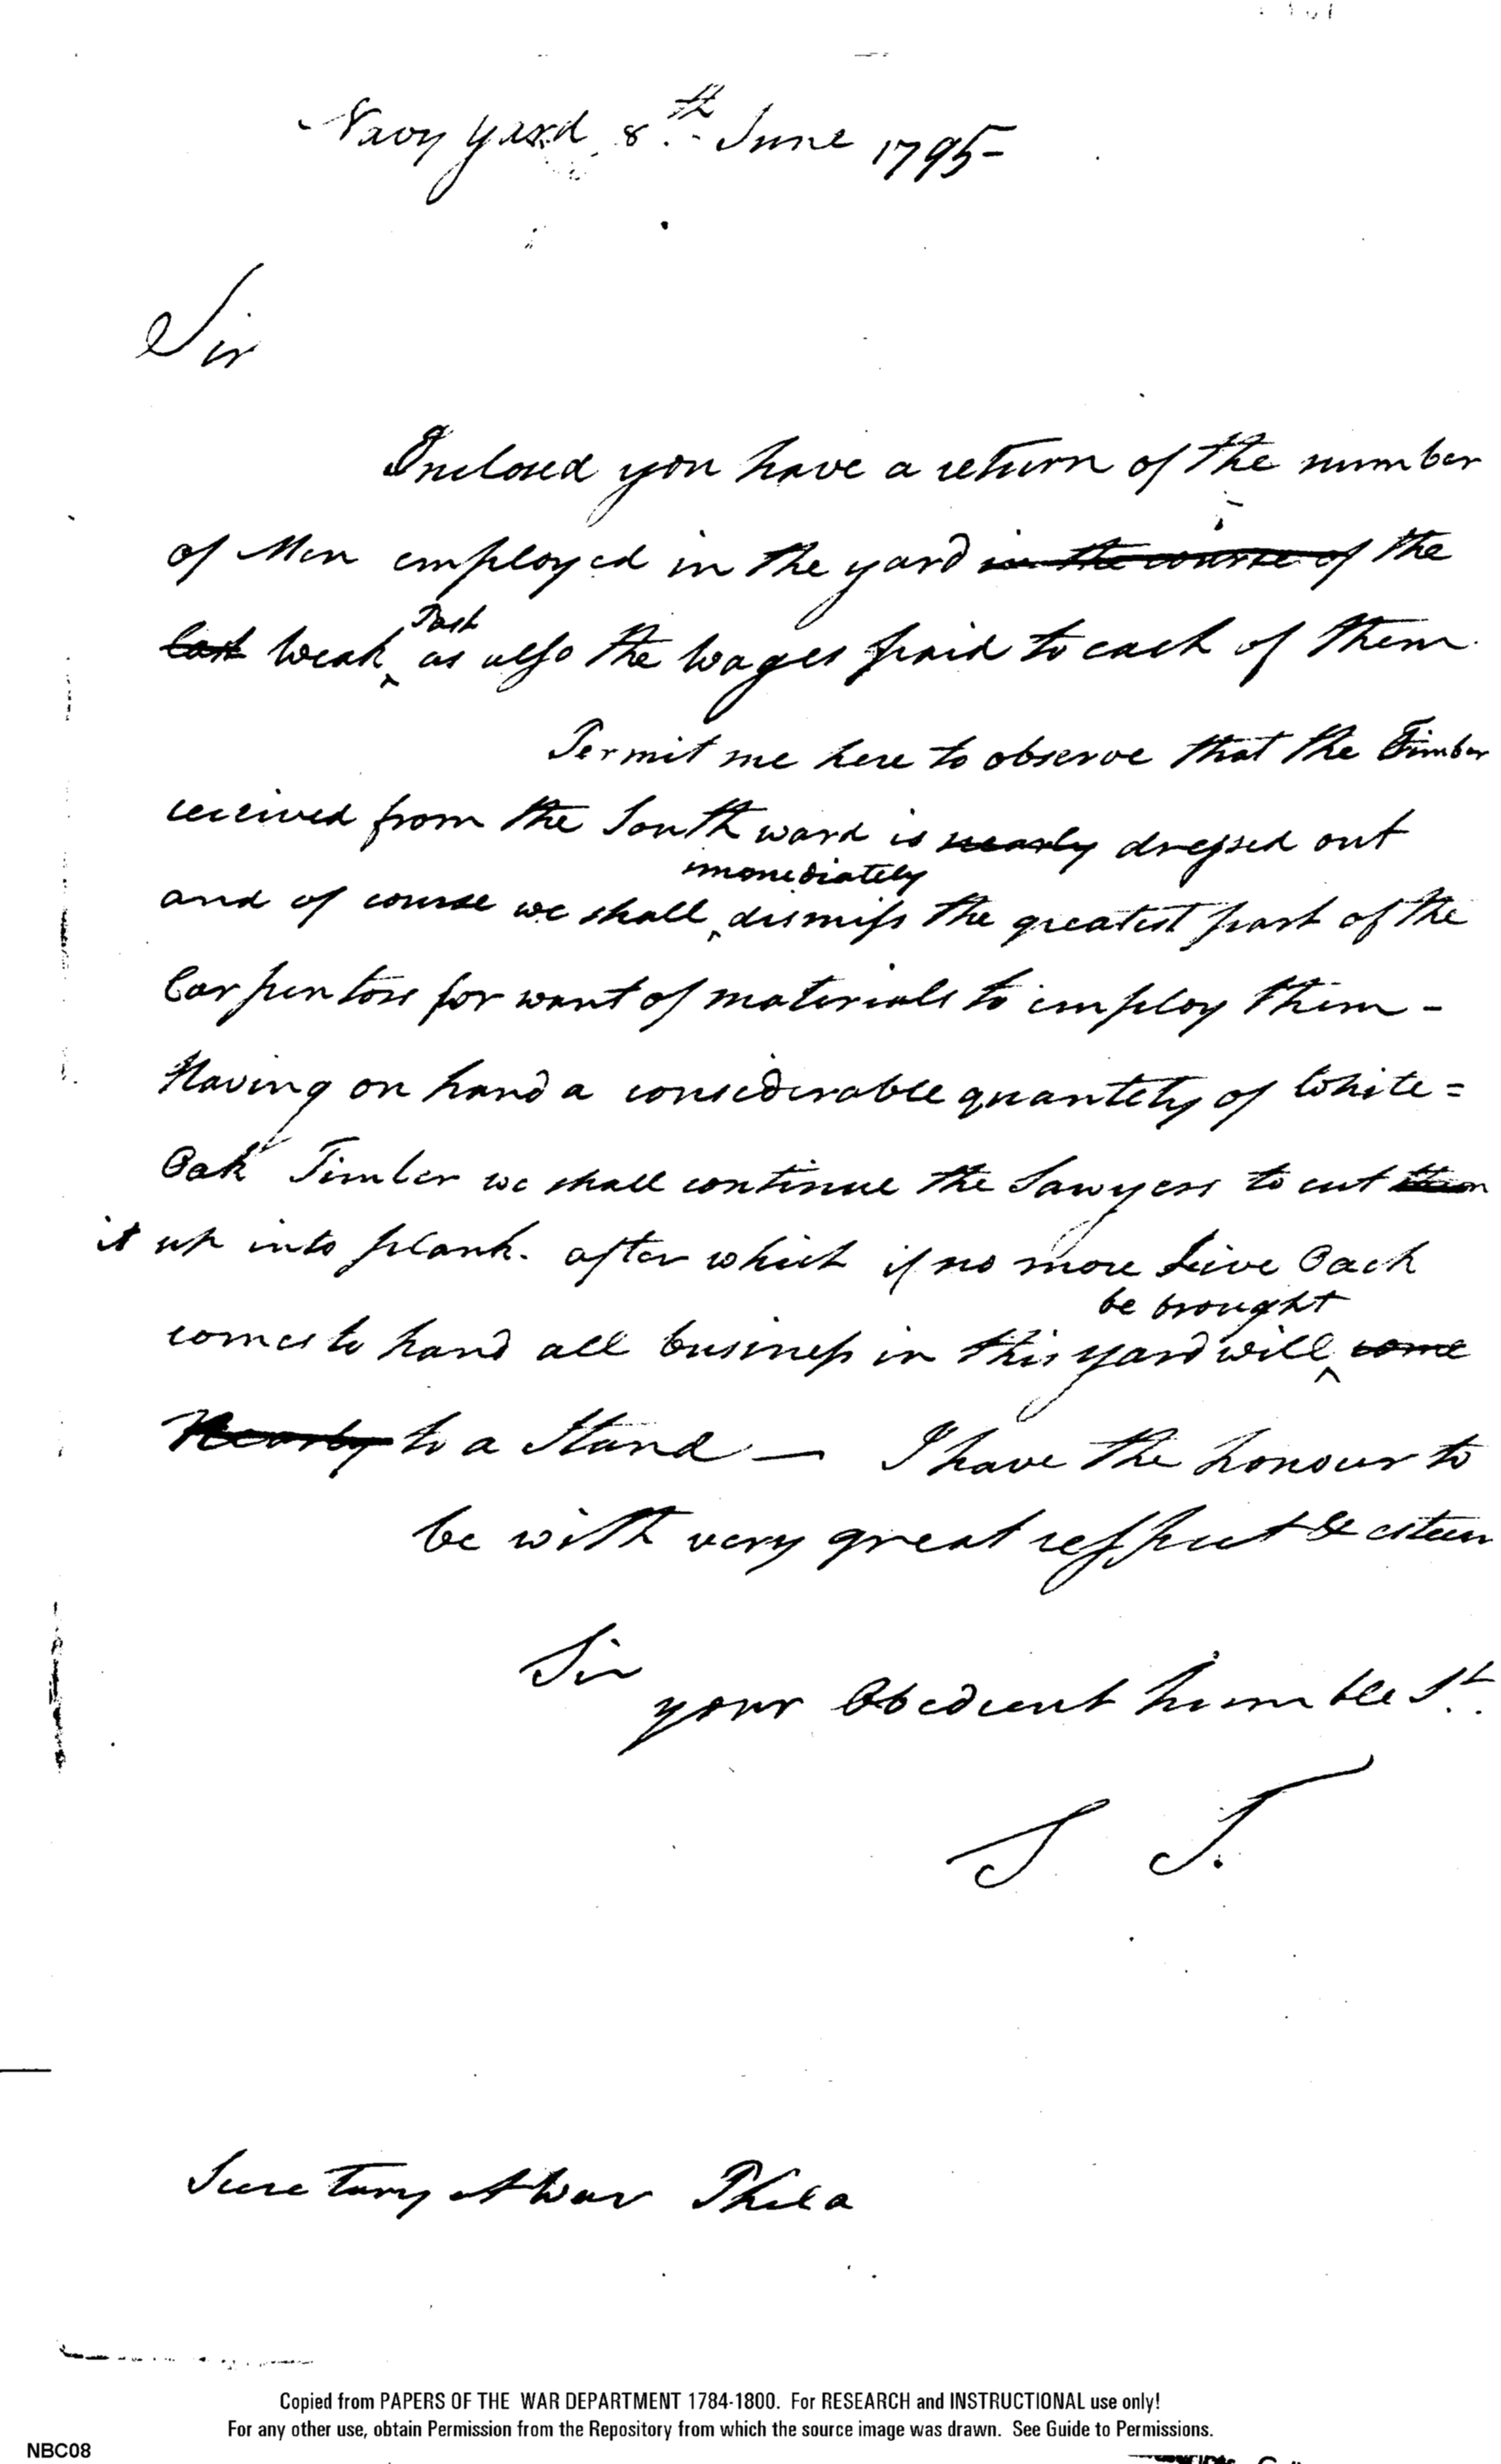 Navy Yard 8th June 1795-
Sir
Inclosed you have a return of the number
of Men employed in the yard in the course of the
Past
last Weak as also the Wages paid to each of them
Permit me here to observe that the Timber
received from the Southward is nearly dressed out
immediately
and of course we shall dismiss the greatest part of the
Carpentors for want of materials to employ them -
Having on hand a considerable quantety of White=
Oak Timber we shall continue the Sawyers to cut them
it up into plank. after which if no more Live Oack
be brought
comes to hand all business in this yard will come
Nearly to a Stand — I have the honour to
be with very great respect & esteem
Sir
your Obedient humble St.
J T.
Secretary at War Phila
Copied from PAPERS OF THE WAR DEPARTMENT 1784-1800. For RESEARCH and INSTRUCTIONAL use only!
For any other use, obtain Permission from the Repository from which the source image was drawn. See Guide to Permissions.
NBC08